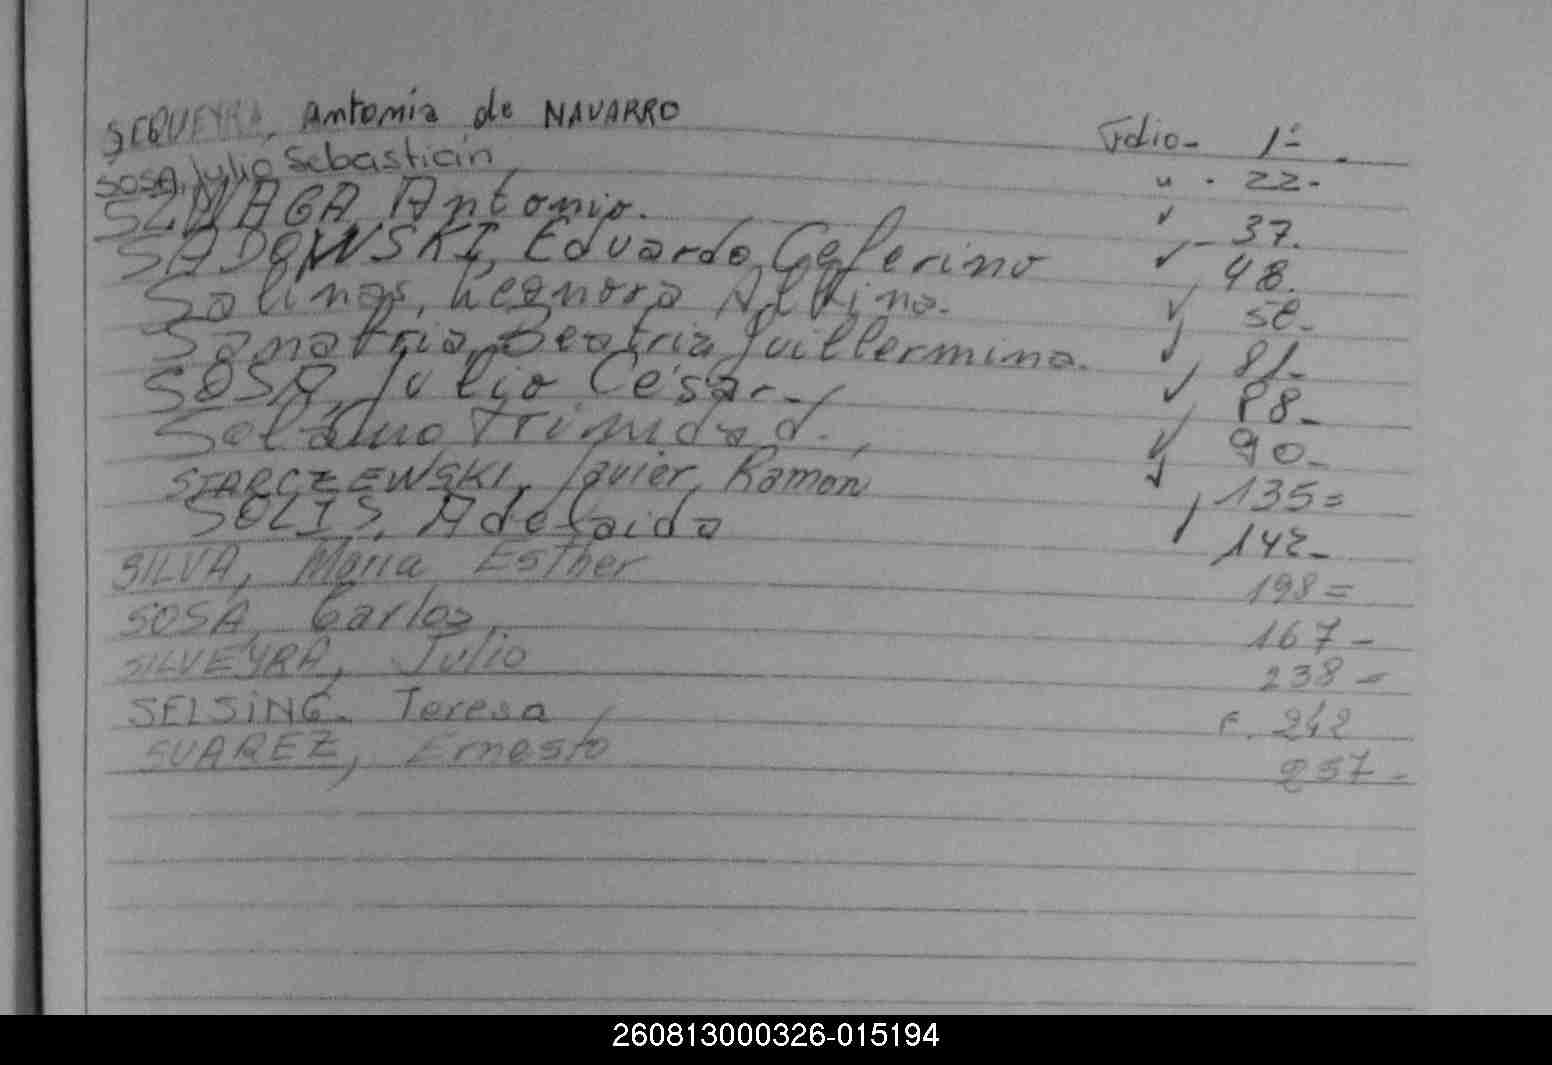 SEQUEYRA, Antonia de NAVARRO Folio - 1-
SOSA, Julio Sebastián " . 22.
SZWAGA Antonio. 37.
SADOWSKI, Eduardo Ceferino - 48.
Salinas, Leonora Albina. 58.
Sanabria, Beatriz Guillermina. 81-
SOSA, Julio César - 88-
Trinidad. 90-
STARCZEWSKI, Javier, Ramón 135=
SOLIS, Adelaida 142-
SILVA, María Esther 198=
SOSA Carlos 167-
SILVEYRA, Julio 238=
SELSING. Teresa F. 242
SUAREZ, Ernesto 257-
260813000326-015194